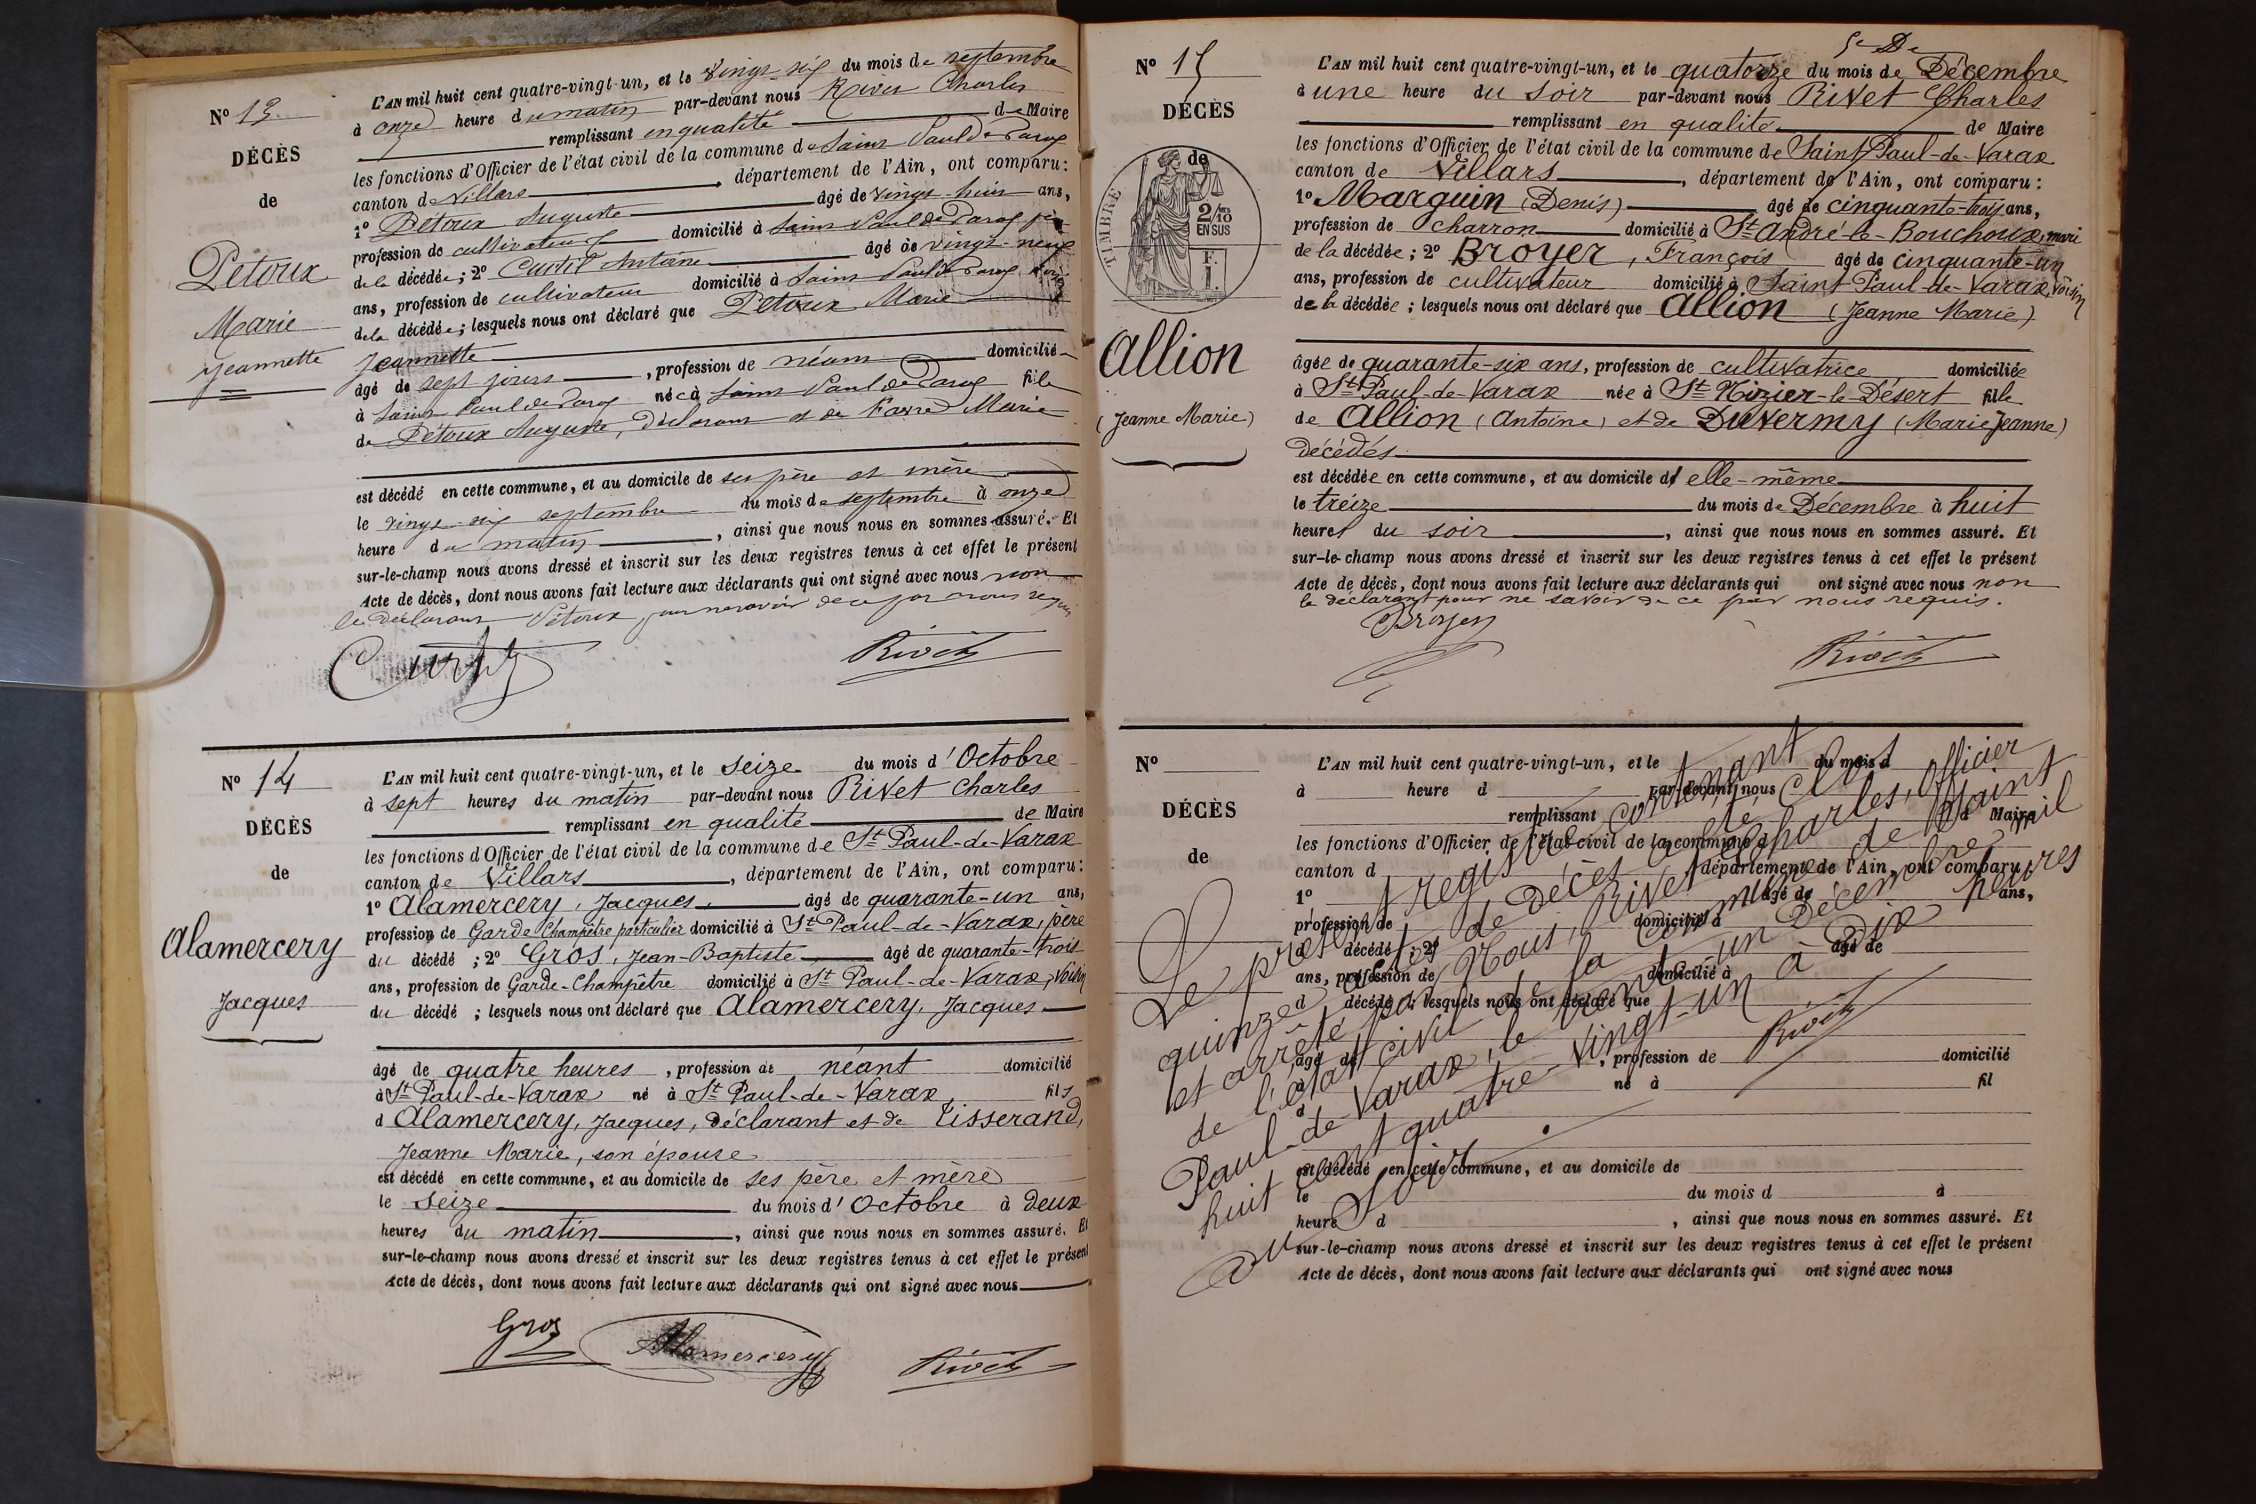 Nº 13
DÉCÈS
de
Pétoux
Marie
Jeannette
L'AN mil huit cent quatre-vingt-un, et le vingt-six du mois de septembre
à onze heure du matin par-devant nous Rivet Charles
remplissant en qualité de Maire
les fonctions d'Officier de l'état civil de la commune de Saint Paul de Varax
canton de Villars, département de l'Ain, ont comparu:
1º Pétoux Auguste âgé de vingt-huit ans,
profession de cultivateur domicilié à Saint Paul de Varax père
de la décédée; 2º Curtil Antoine âgé de vingt-neuf
ans, profession de cultivateur domicilié à Saint Paul de Varax
de la décédée; lesquels nous ont déclaré que Pétoux Marie
Jeannette
âgé de sept jours, profession de néant domicilié
à Saint Paul de Varax née à Saint Paul de Varax fille
de Pétoux Auguste, déclarant et de Favre Marie
est décédé en cette commune, et au domicile de ses père et mère
le vingt-six septembre du mois de septembre à onze
heure du matin, ainsi que nous nous en sommes assuré. Et
sur-le-champ nous avons dressé et inscrit sur les deux registres tenus à cet effet le présent
Acte de décès, dont nous avons fait lecture aux déclarants qui ont signé avec nous non
le déclarant Pétoux pour ne savoir de ce par nous requis
Curtil Rivet
Nº 14
DÉCÈS
de
Alamercery
Jacques
L'AN mil huit cent quatre-vingt-un, et le seize du mois d'Octobre
à sept heures du matin par-devant nous Rivet Charles
remplissant en qualité de Maire
les fonctions d'Officier de l'état civil de la commune de St Paul-de-Varax
canton de Villars, département de l'Ain, ont comparu:
1º Alamercery, Jacques, âgé de quarante-un ans,
profession de Garde Champêtre particulier domicilié à St Paul-de-Varax, père
du décédé; 2º Gros, Jean-Baptiste âgé de quarante-trois
ans, profession de Garde-Champêtre domicilié à St Paul-de-Varax, voisin
du décédé; lesquels nous ont déclaré que Alamercery, Jacques
âgé de quatre heures, profession de néant domicilié
à St Paul-de-Varax né à St Paul-de-Varax, fils
d Alamercery, Jacques, déclarant et de Tisserand,
Jeanne Marie, son épouse
est décédé en cette commune, et au domicile de ses père et mère
le seize du mois d'Octobre à deux
heures du matin, ainsi que nous nous en sommes assuré. Et
sur-le-champ nous avons dressé et inscrit sur les deux registres tenus à cet effet le présent
Acte de décès, dont nous avons fait lecture aux déclarants qui ont signé avec nous
Gros Alamercery Rivet
Nº 15
DÉCÈS
de
TIMBRE
2/10 EN SUS
F. 1.
Allion
(Jeanne Marie)
5e De
L'AN mil huit cent quatre-vingt-un, et le quatorze du mois de Décembre
à une heure du soir par-devant nous Rivet Charles
remplissant en qualité de Maire
les fonctions d'Officier de l'état civil de la commune de Saint Paul-de-Varax
canton de Villars, département de l'Ain, ont comparu:
1º Marguin (Denis) âgé de cinquante-trois ans,
profession de Charron domicilié à St André-le-Bouchoux, mari
de la décédée; 2º Broyer, François âgé de cinquante-un
ans, profession de cultivateur domicilié à Saint Paul-de-Varax, voisin
de la décédée; lesquels nous ont déclaré que Allion (Jeanne Marie)
âgée de quarante-six ans, profession de cultivatrice domiciliée
à St Paul-de-Varax née à St Nizier-le-Désert fille
de Allion (Antoine) et de Duvermy (Marie Jeanne)
décédés
est décédée en cette commune, et au domicile d'elle-même
le treize du mois de Décembre à huit
heures du soir, ainsi que nous nous en sommes assuré. Et
sur-le-champ nous avons dressé et inscrit sur les deux registres tenus à cet effet le présent
Acte de décès, dont nous avons fait lecture aux déclarants qui ont signé avec nous non
le déclarant pour ne savoir de ce par nous requis.
Broyer Rivet
Nº
DÉCÈS
de
L'AN mil huit cent quatre-vingt-un, et le du mois d
à heure d par-devant nous
remplissant d Maire
les fonctions d'Officier de l'état civil de la commune d
canton d département de l'Ain, ont comparu:
1º âgé de ans,
profession de domicilié à
d décédé; 2º âgé de
ans, profession de domicilié à
d décédé; lesquels nous ont déclaré que
âgé de, profession de domicilié
à né à fil
d
est décédé en cette commune, et au domicile de
le du mois d à
heure d, ainsi que nous nous en sommes assuré. Et
sur-le-champ nous avons dressé et inscrit sur les deux registres tenus à cet effet le présent
Acte de décès, dont nous avons fait lecture aux déclarants qui ont signé avec nous
Le présent registre contenant
quinze actes de Décès a été clos
et arrêté par Nous, Rivet Charles, Officier
de l'état civil de la Commune de Saint
Paul-de-Varax, le trente-un Décembre mil
huit cent quatre-vingt-un à Dix heures
du Soir.
Rivet